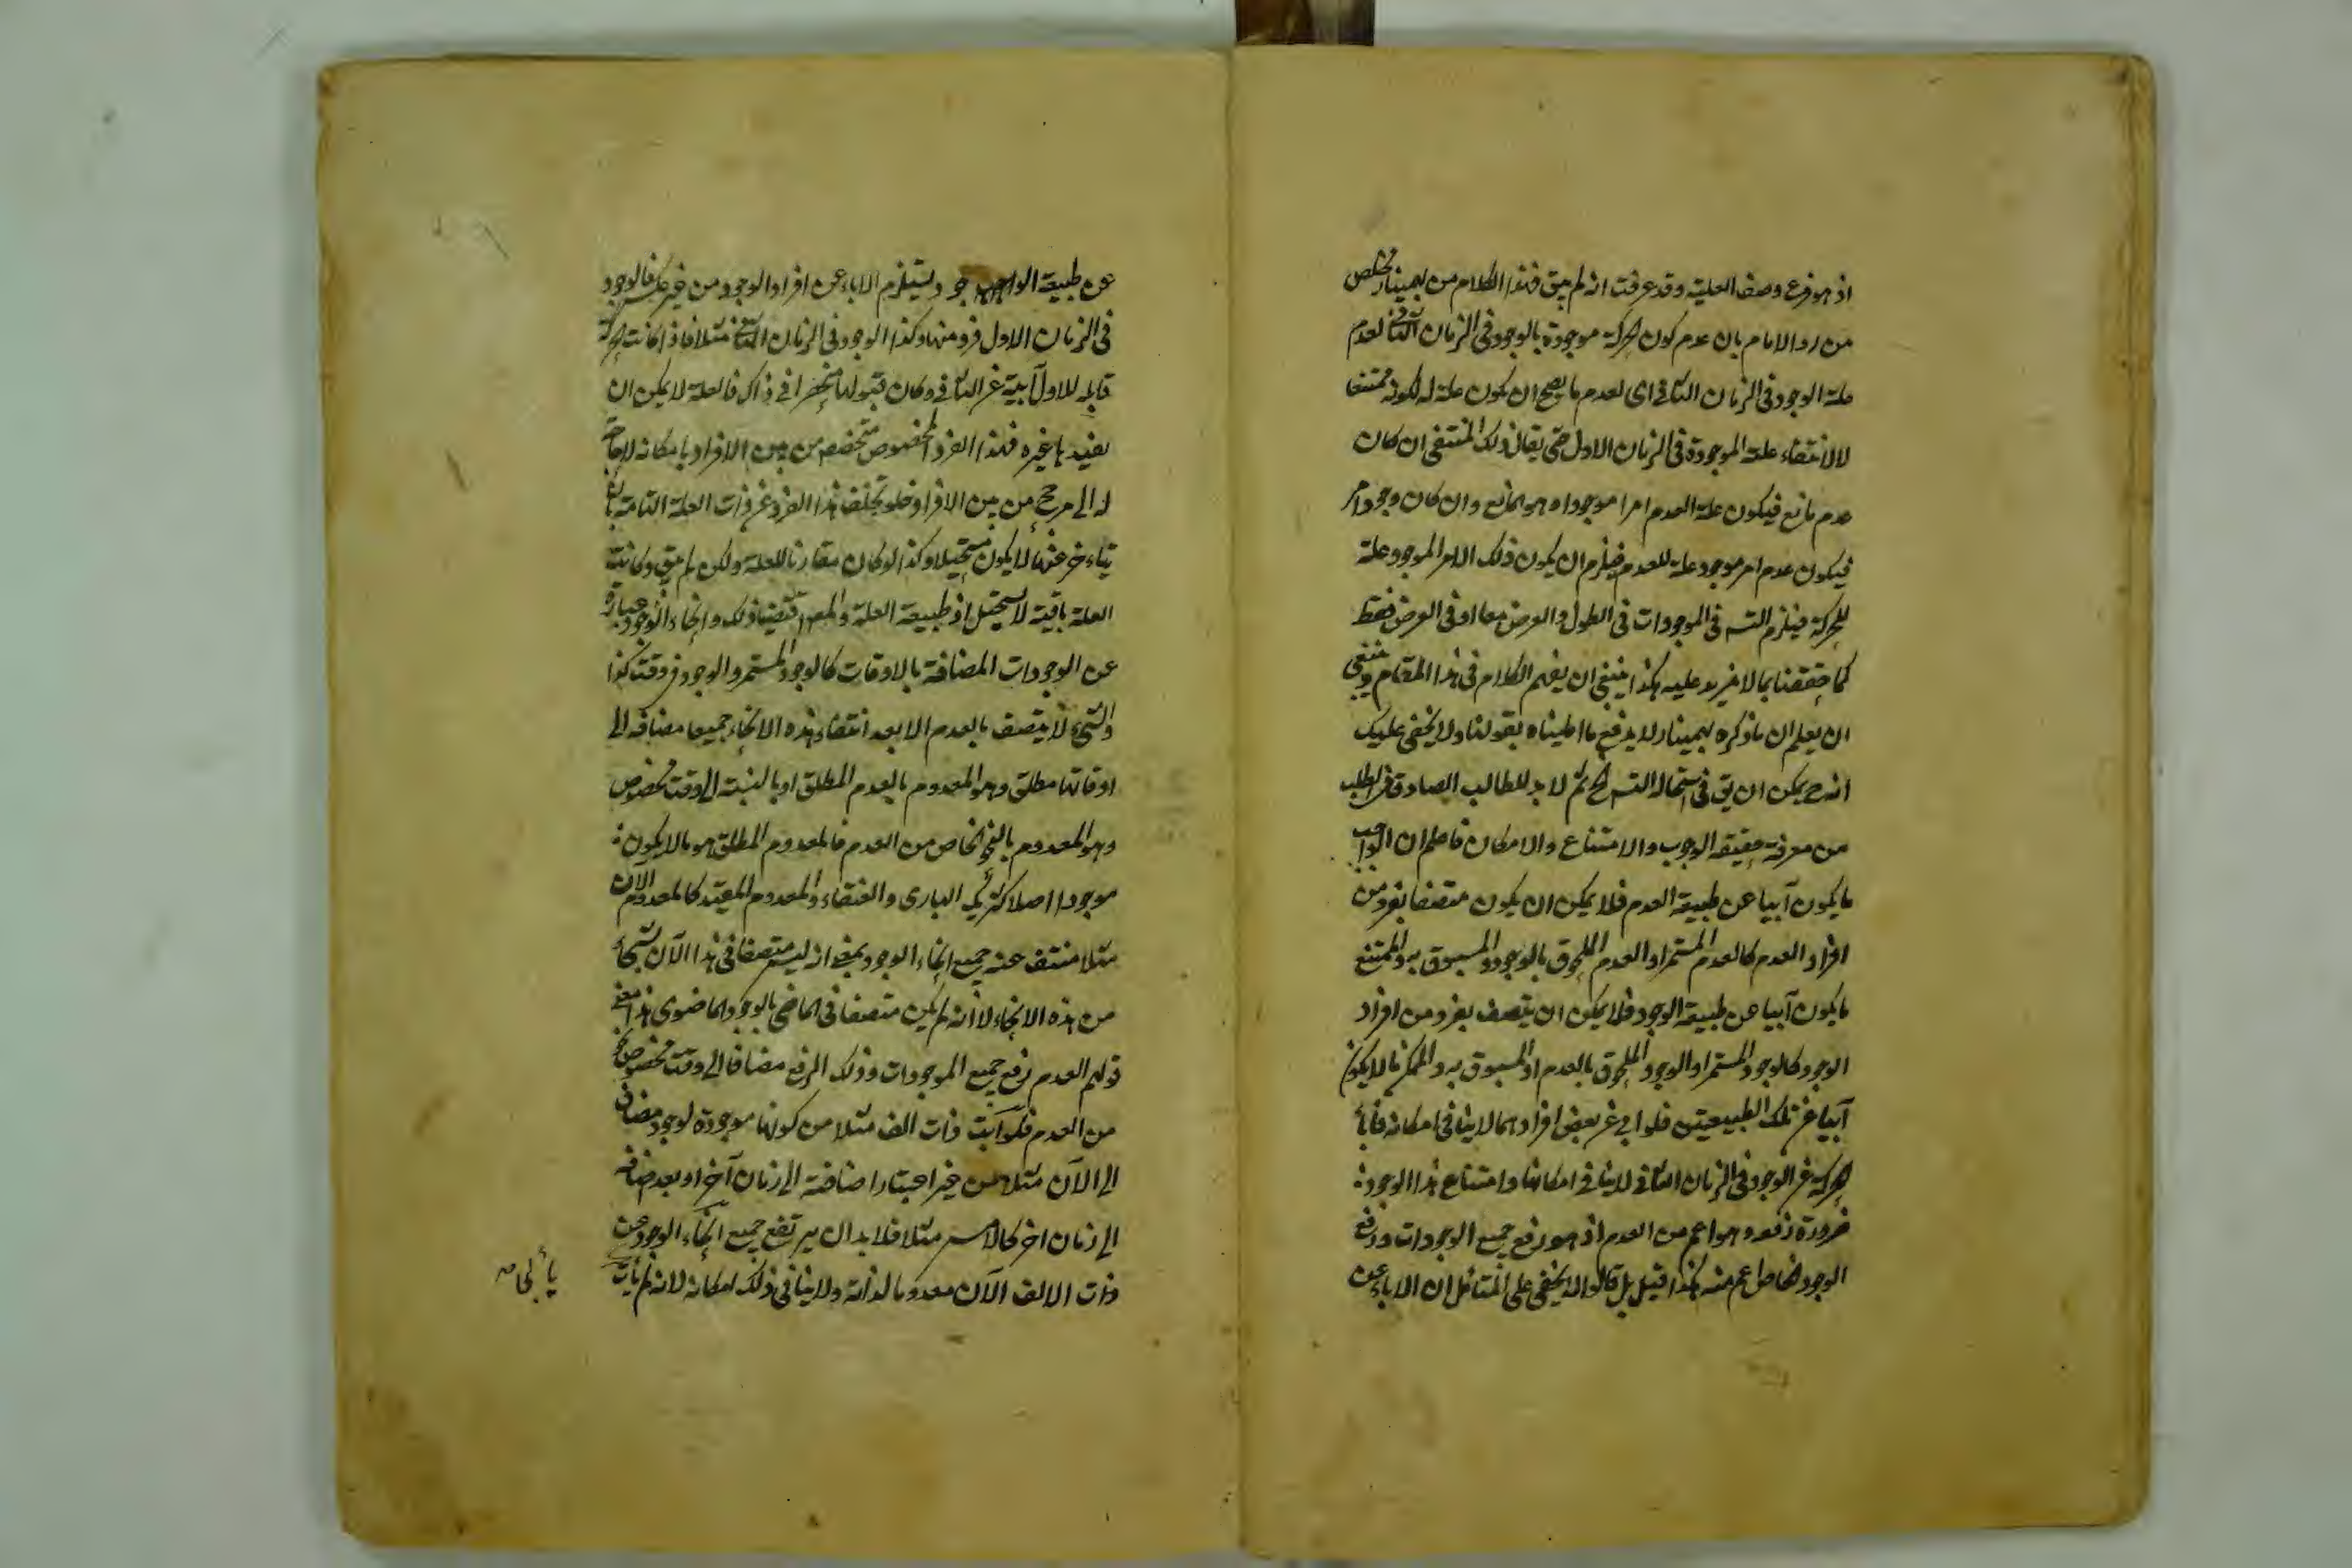 اذ هو فرع وصف العلية وقد عرفت انه لم يبق فهذا الكلام من بهمنيار مخلص
من رد الامام بان عدم كون الحركة موجودة بالوجود فى الزمان الثانى لعدم
علة الوجود فى الزمان الثانى اى لعدم ما يصح ان يكون علة له لكونه ممتنعا
لا لانتفاء علته الموجودة فى الزمان الاول حتى يقال ذلك المنتفى ان كان
عدم مانع فيكون علة العدم امرا موجودا وهو المانع وان كان وجود امر
فيكون عدم امر موجود علة للعدم فيلزم ان يكون ذلك الامر الموجود علة
للحركة فيلزم التسه فى الموجودات فى الطول والعرض معا او فى العرض فقط
كما حققنا بما لا مزيد عليه هكذا ينبغى ان يفهم الكلام فى هذا المقام وينبغى
ان يعلم ان ما ذكره بهمنيار لا يدفع ما اطلبناه بقولنا ولا يخفى عليك
انه ح يمكن ان يق فى استحالة التسه الخ ثم لا بد للطالب الصادق فى الطلب
من معرفة حقيقة الوجوب والامتناع والامكان فاعلم ان الواجب
ما يكون آبيا عن طبيعة العدم فلا يمكن ان يكون متصفا بفرد من
افراد العدم كالعدم المستمر او العدم الملحوق بالوجود والمسبوق به والممتنع
ما يكون آبيا عن طبيعة الوجود فلا يمكن ان يتصف بفرد من افراد
الوجود كالوجود المستمر او الوجود الملحوق بالعدم او المسبوق به والممكن ما لا يكون
آبيا عن تلك الطبيعتين فلو ابى عن بعض افرادهما لا ينافى امكانه فاباء
الحركة عن الوجود فى الزمان الثانى لا ينافى امكانها وامتناع هذا الوجود
ضرورة رفعه وهو اعم من العدم اذ هو رفع جميع الوجودات ورفع
الوجود الخاص اعم منه هكذا قيل بل قالوا لا يخفى على المتامل ان الاباء عن
عن طبيعة الوجود ويستلزم الاباء عن افراد الوجود من غير عكس فالوجود
فى الزمان الاول فرد منها وكذا الوجود فى الزمان الثانى مثلا فاذا كانت الحركة
قابلة للاول آبية عن الثانى وكان قبولها منحصرا فى ذاك فالعلة لا يمكن ان
يفيدها غيره فهذا الفرد المخصوص متخصص من بين الافراد بامكانه لا حاجة
له الى مرجح من بين الافراد فلو تخلف هذا الفرد عن ذات العلة التامة بان
يتاخر عنها لا يكون مستحيلا وكذا لو كان مقارنا للعلة ولكن لم يبق وكانت
العلة باقية لا يستحيل اذ طبيعة العلة والمعلول تقتضيان ذلك وانحاء الوجود عبارة
عن الوجودات المضافة بالاوقات كالوجود المستمر والوجود فى وقت كذا
والشئ لا يتصف بالعدم الا بعد انتفاء هذه الانحاء جميعا مضافه الى
اوقاتها مطلق وهو المعدوم بالعدم المطلق او بالنسبة الى وقت مخصوص
وهو المعدوم بالنحو الخاص من العدم فالمعدوم المطلق هو ما لا يكون
موجودا اصلا كشريك البارى والعنقاء والمعدوم المقيد كالمعدوم الآن
مثلا منتف عنه جميع انحاء الوجود بمعنى انه ليس متصفا فى هذا الآن بشئ
من هذه الانحاء لا انه لم يكن متصفا فى الماضى بالوجود الماضوى هذا معنى
قولهم العدم رفع جميع الموجودات وذلك الرفع مضافا الى وقت مخصوص نحو
من العدم فلو ابت ذات الف مثلا من كونها موجودة لوجود مضاف
الى الآن مثلا من غير اعتبار اضافته الى زمان آخر او بعد اضافته
الى زمان اخر كالامس مثلا فلا بد ان يرتفع جميع انحاء الوجود عن
ذات الالف الآن معدوما لذاته ولا ينافى ذلك امكانه لانه لم يأب